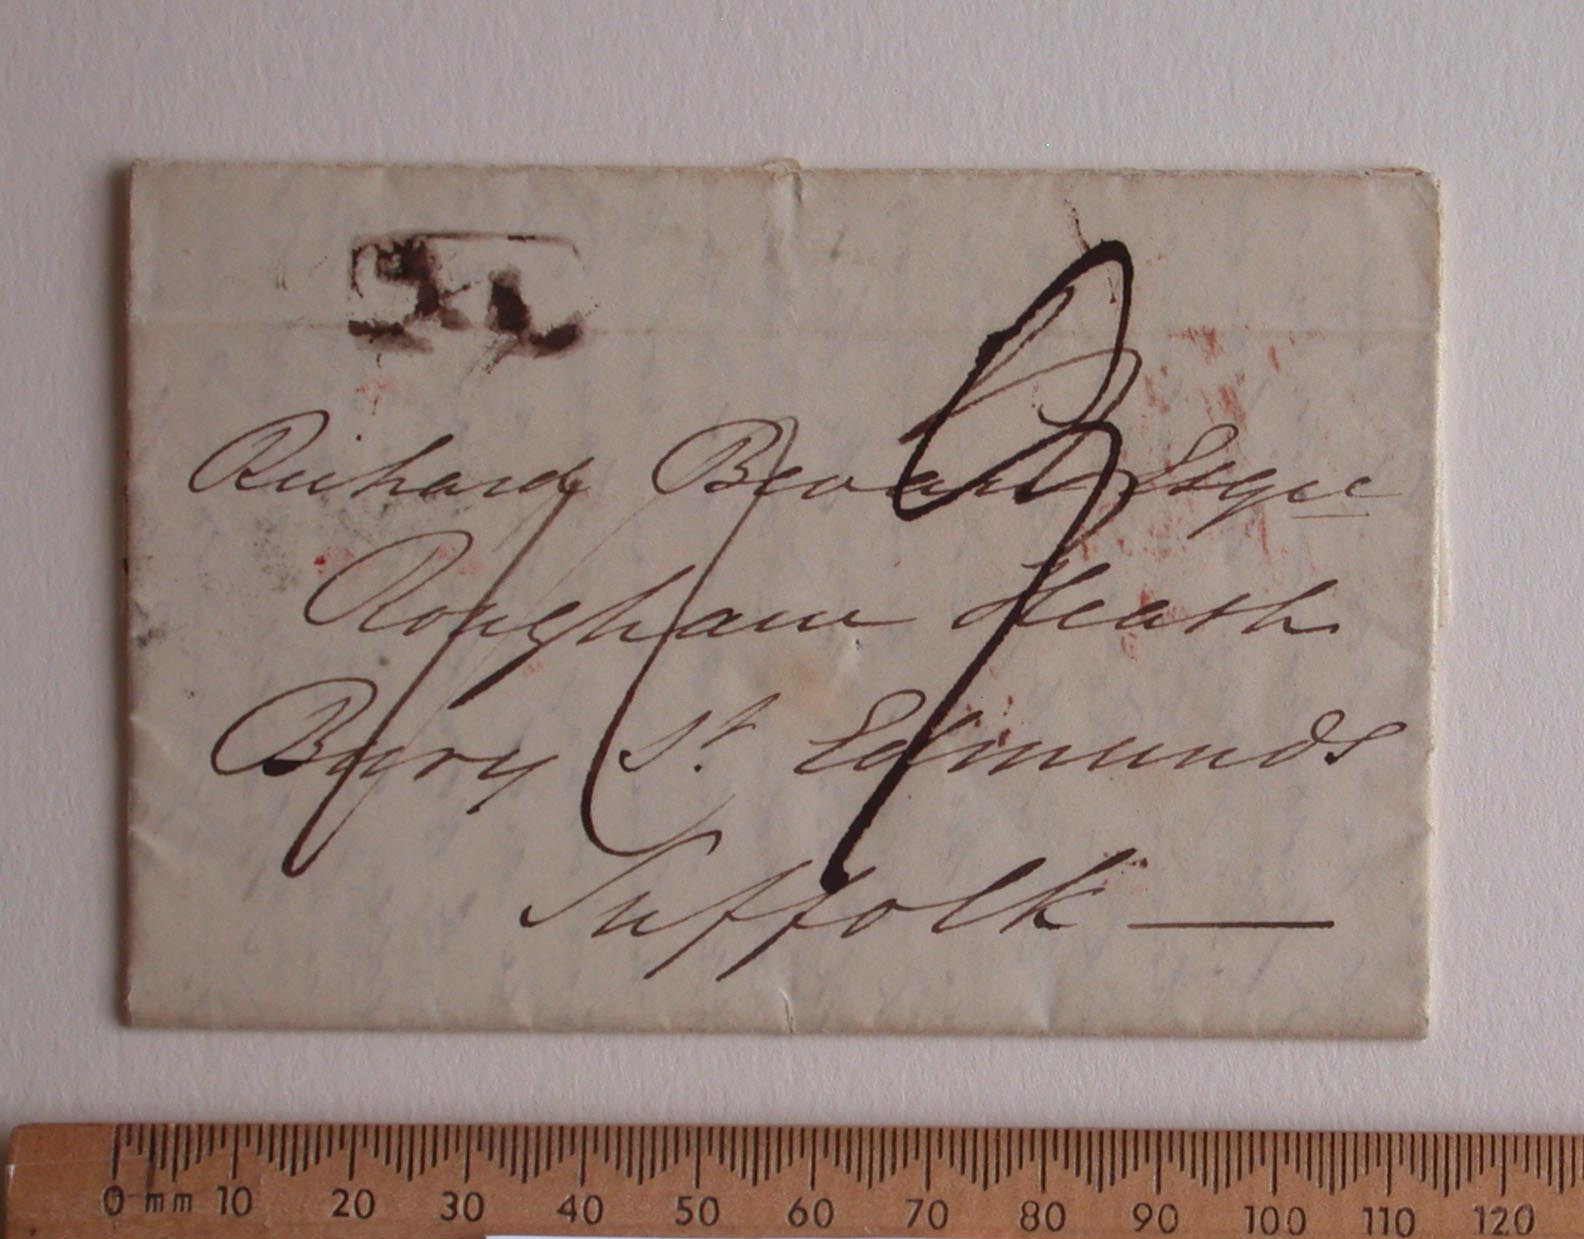 Richard Bevan Esqre
Rougham Heath
Bury St. Edmunds
Suffolk
0 mm 10 20 30 40 50 60 70 80 90 100 110 120